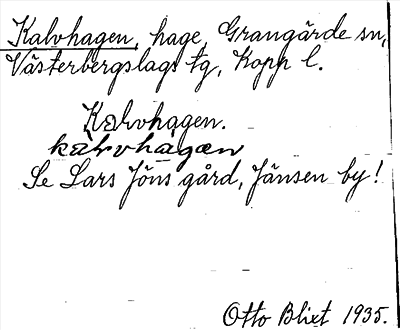 Kalvhagen, hage, Grangärde sn,
Västerbergslags tg, Kopp l.
Kalvhagen.
kàlvhàgæn
Se Lars Jöns gård, Jänsen by!
Otto Blixt 1935.